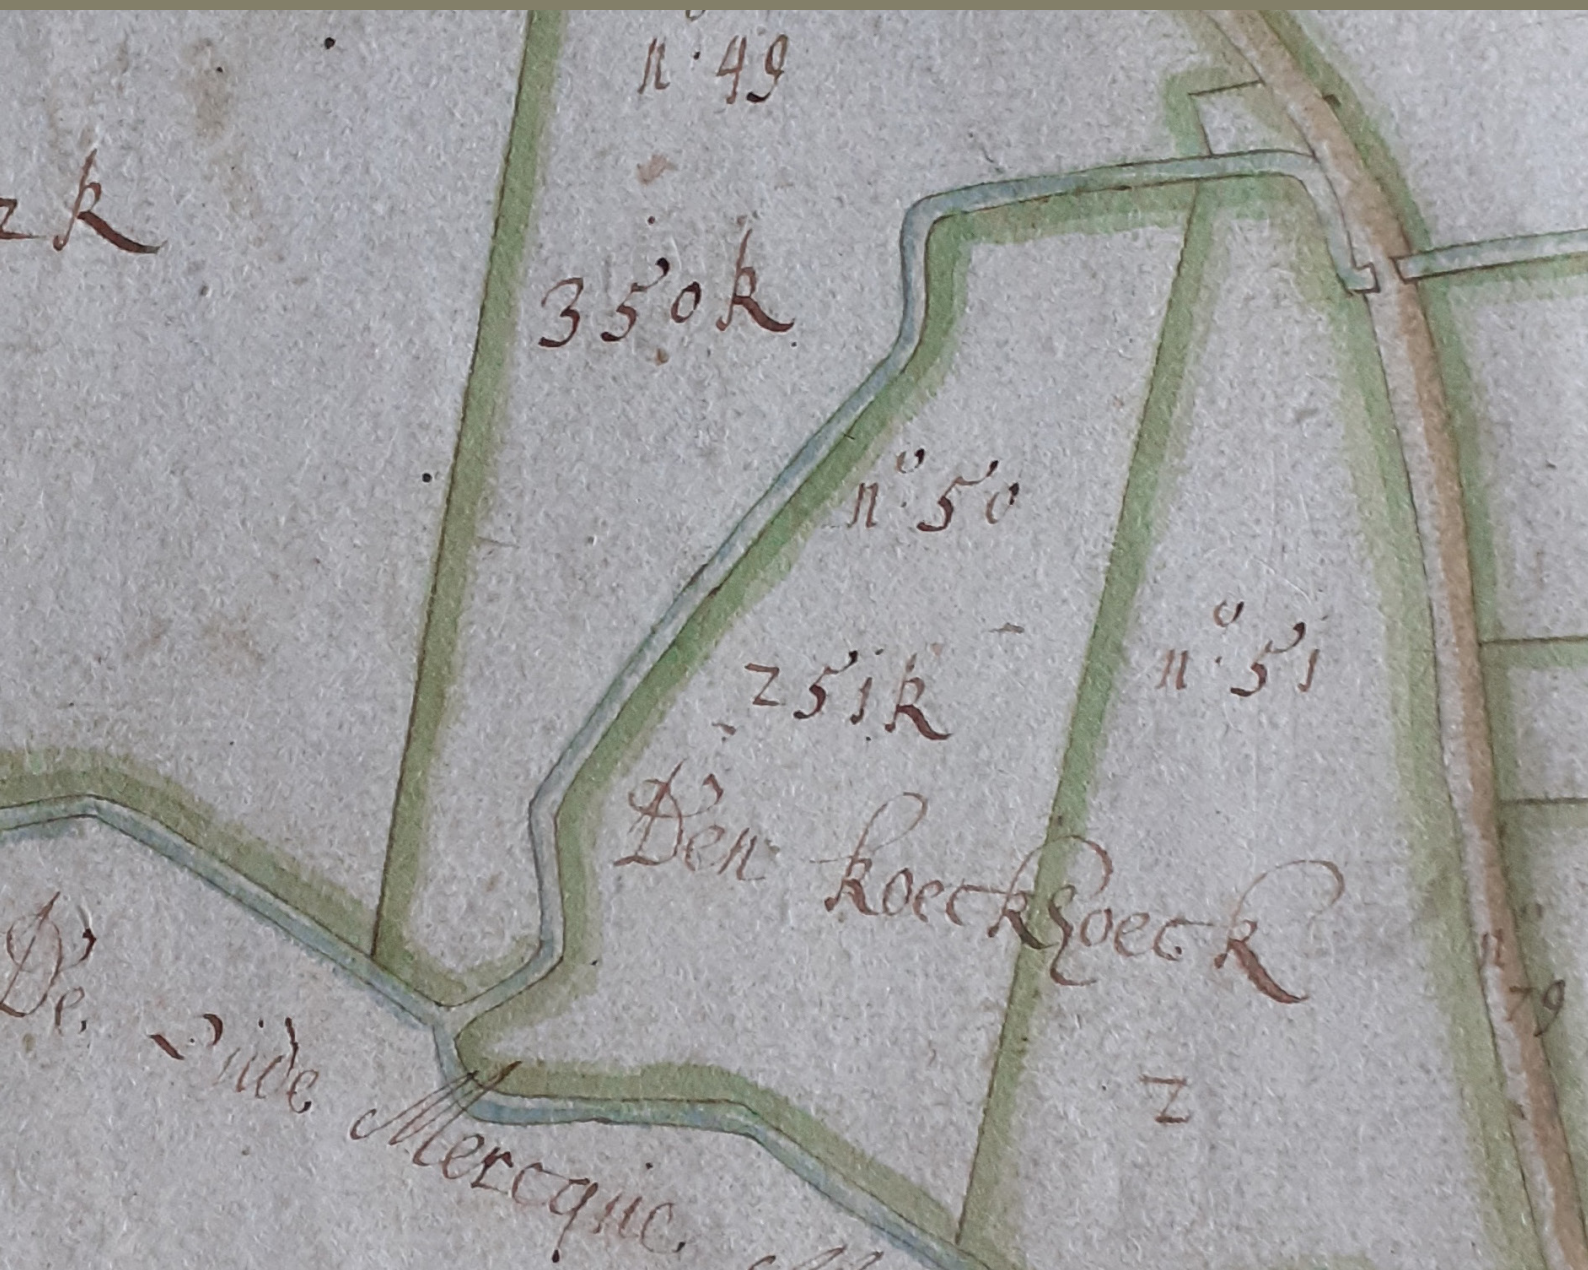 n. 49
2k
350k
n.o 50
251k
n.o 51
Den koeckhoeck
n.o
79
De oude Mercque
2